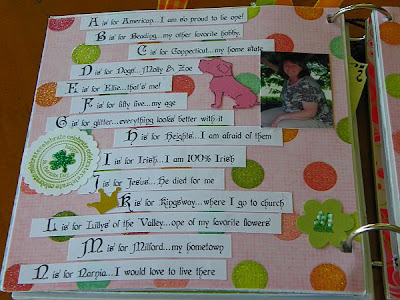 A is for American...I am so proud to be one!
B is for Beading...my other favorite hobby.
C is for Connecticut...my home state
D is for Dogs...Molly & Zoe
E is for Ellie...that's me!
F is for fifty five...my age
G is for glitter...everything looks better with it
H is for Heights...I am afraid of them
I is for Irish...I am 100% Irish
J is for Jesus...He died for me
K is for Kingsway...where I go to church
L is for Lillys of the Valley...one of my favorite flowers
M is for Milford...my hometown
N is for Narnia...I would love to live there